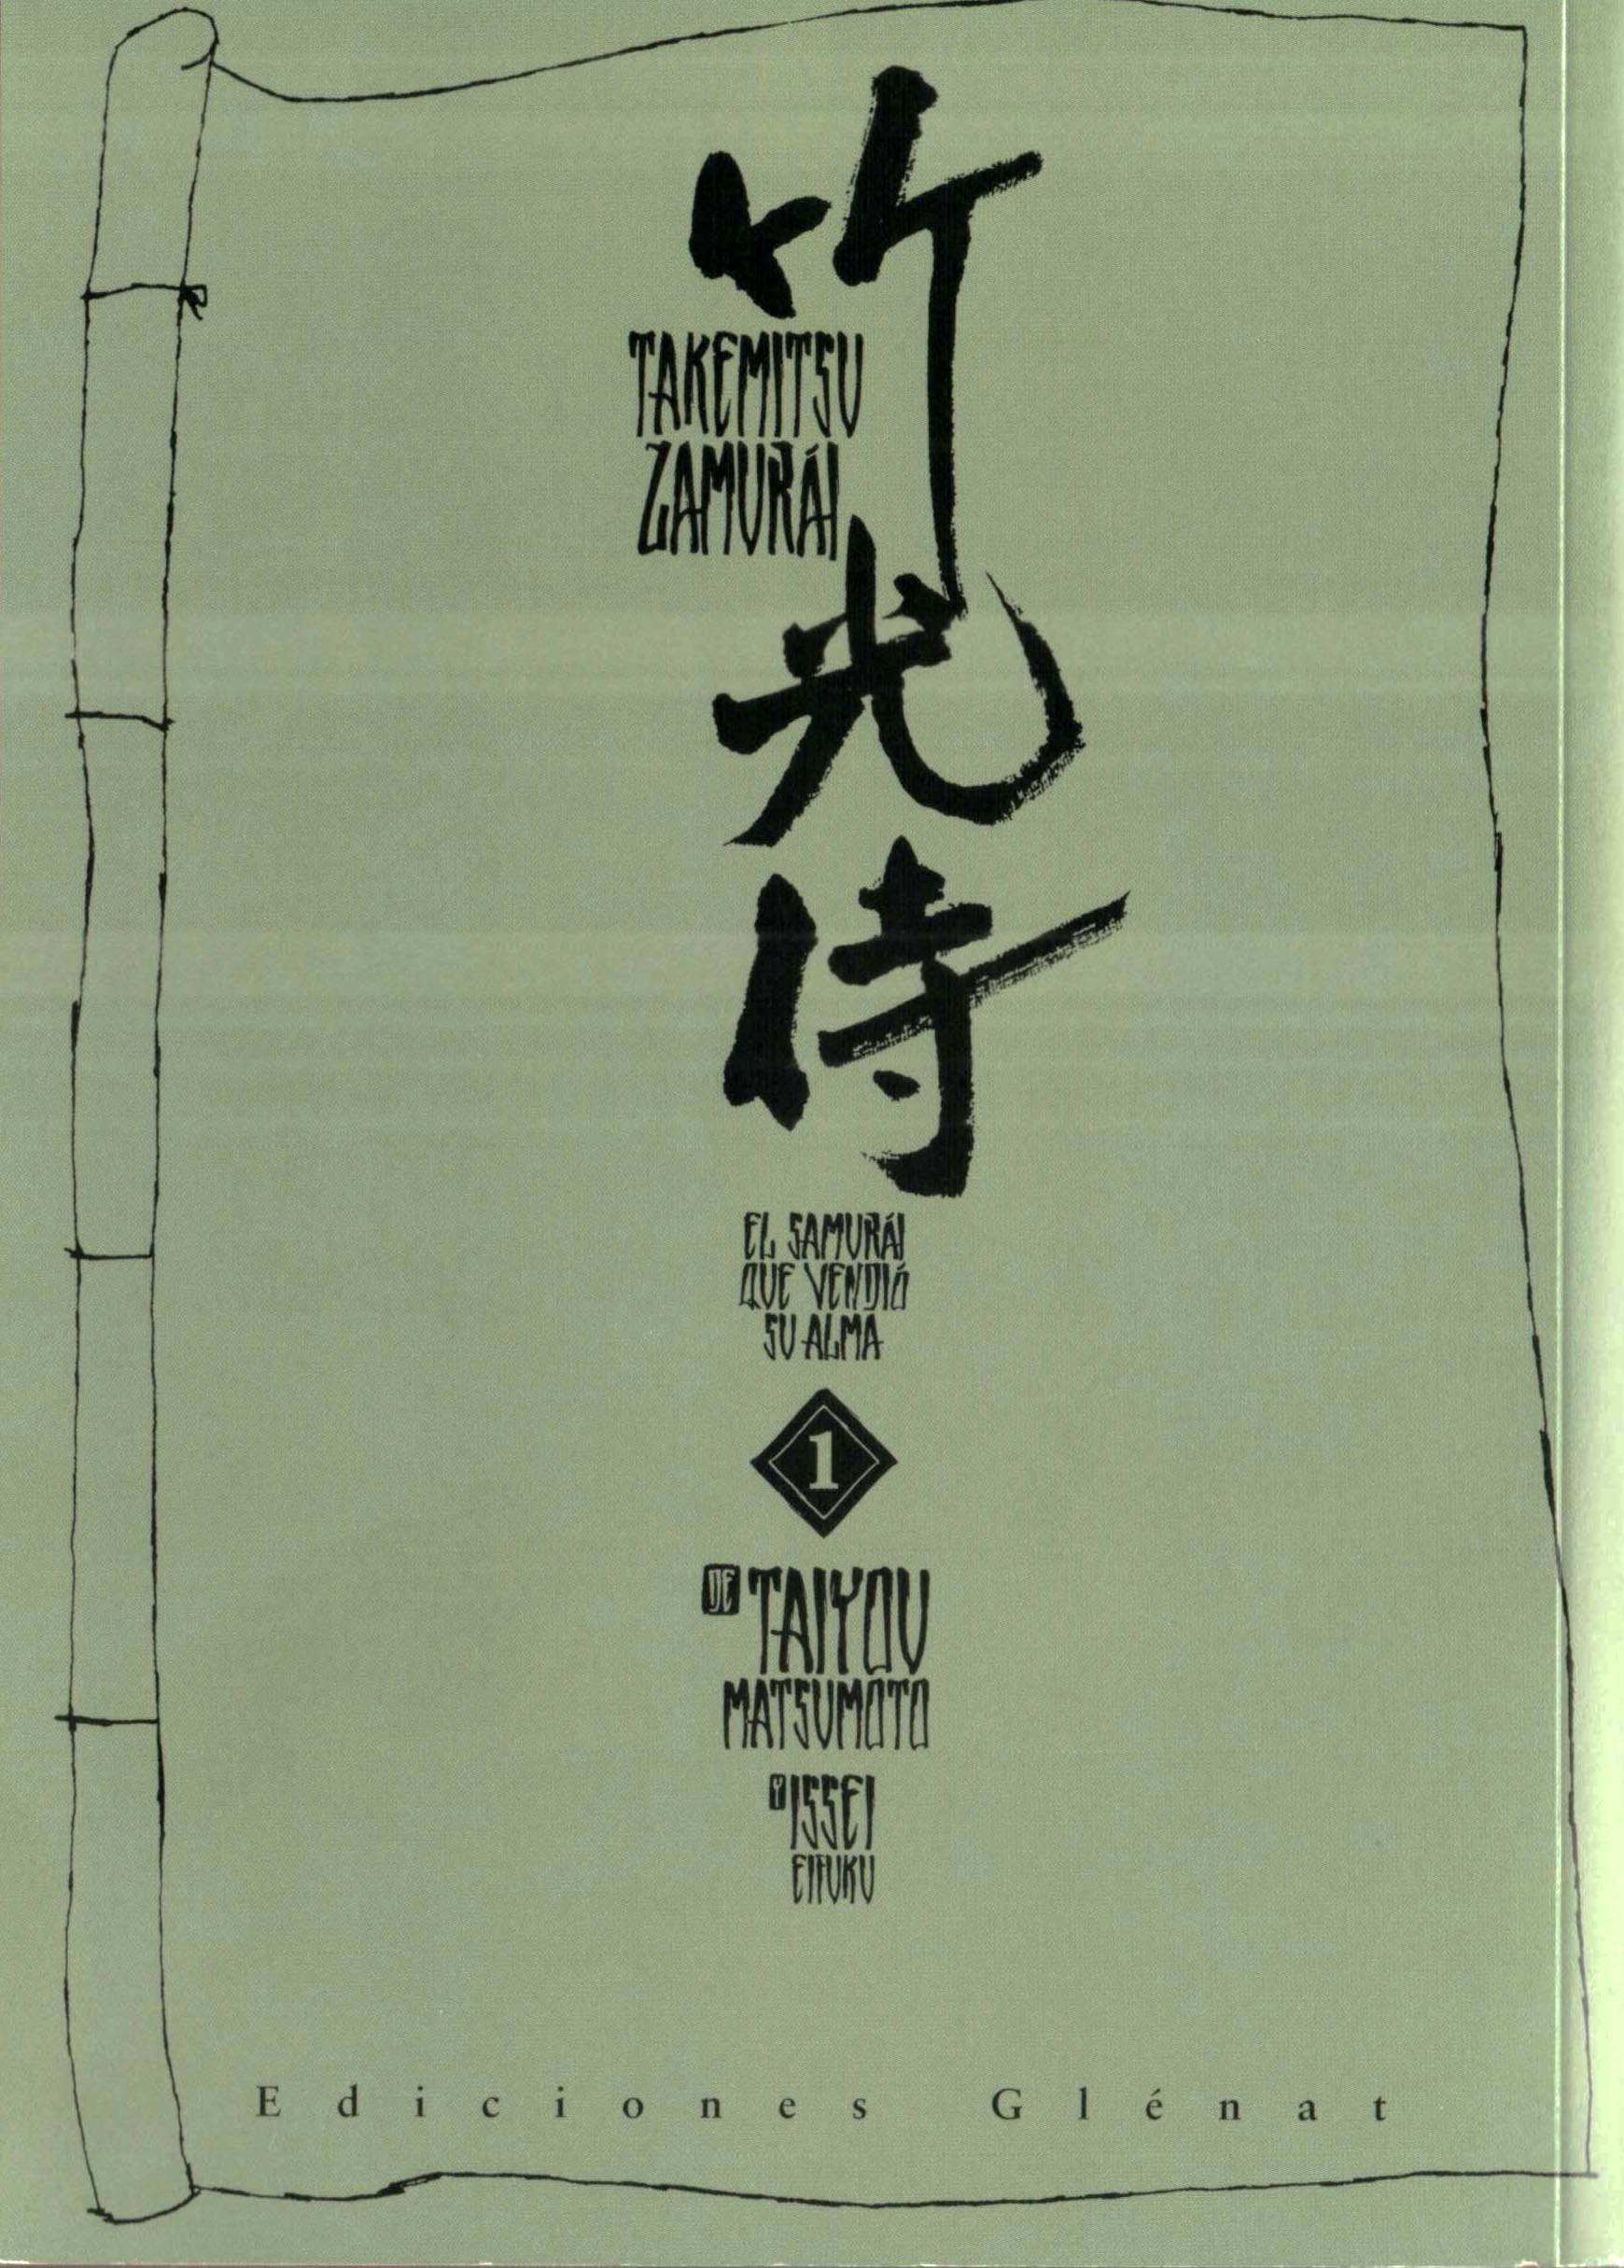 竹光侍
TAKEMITSU
ZAMURÁI
EL SAMURÁI
QUE VENDIÓ
SU ALMA
1
DE TAIYOU
MATSUMOTO
Y ISSEI
EIFUKU
Ediciones Glénat